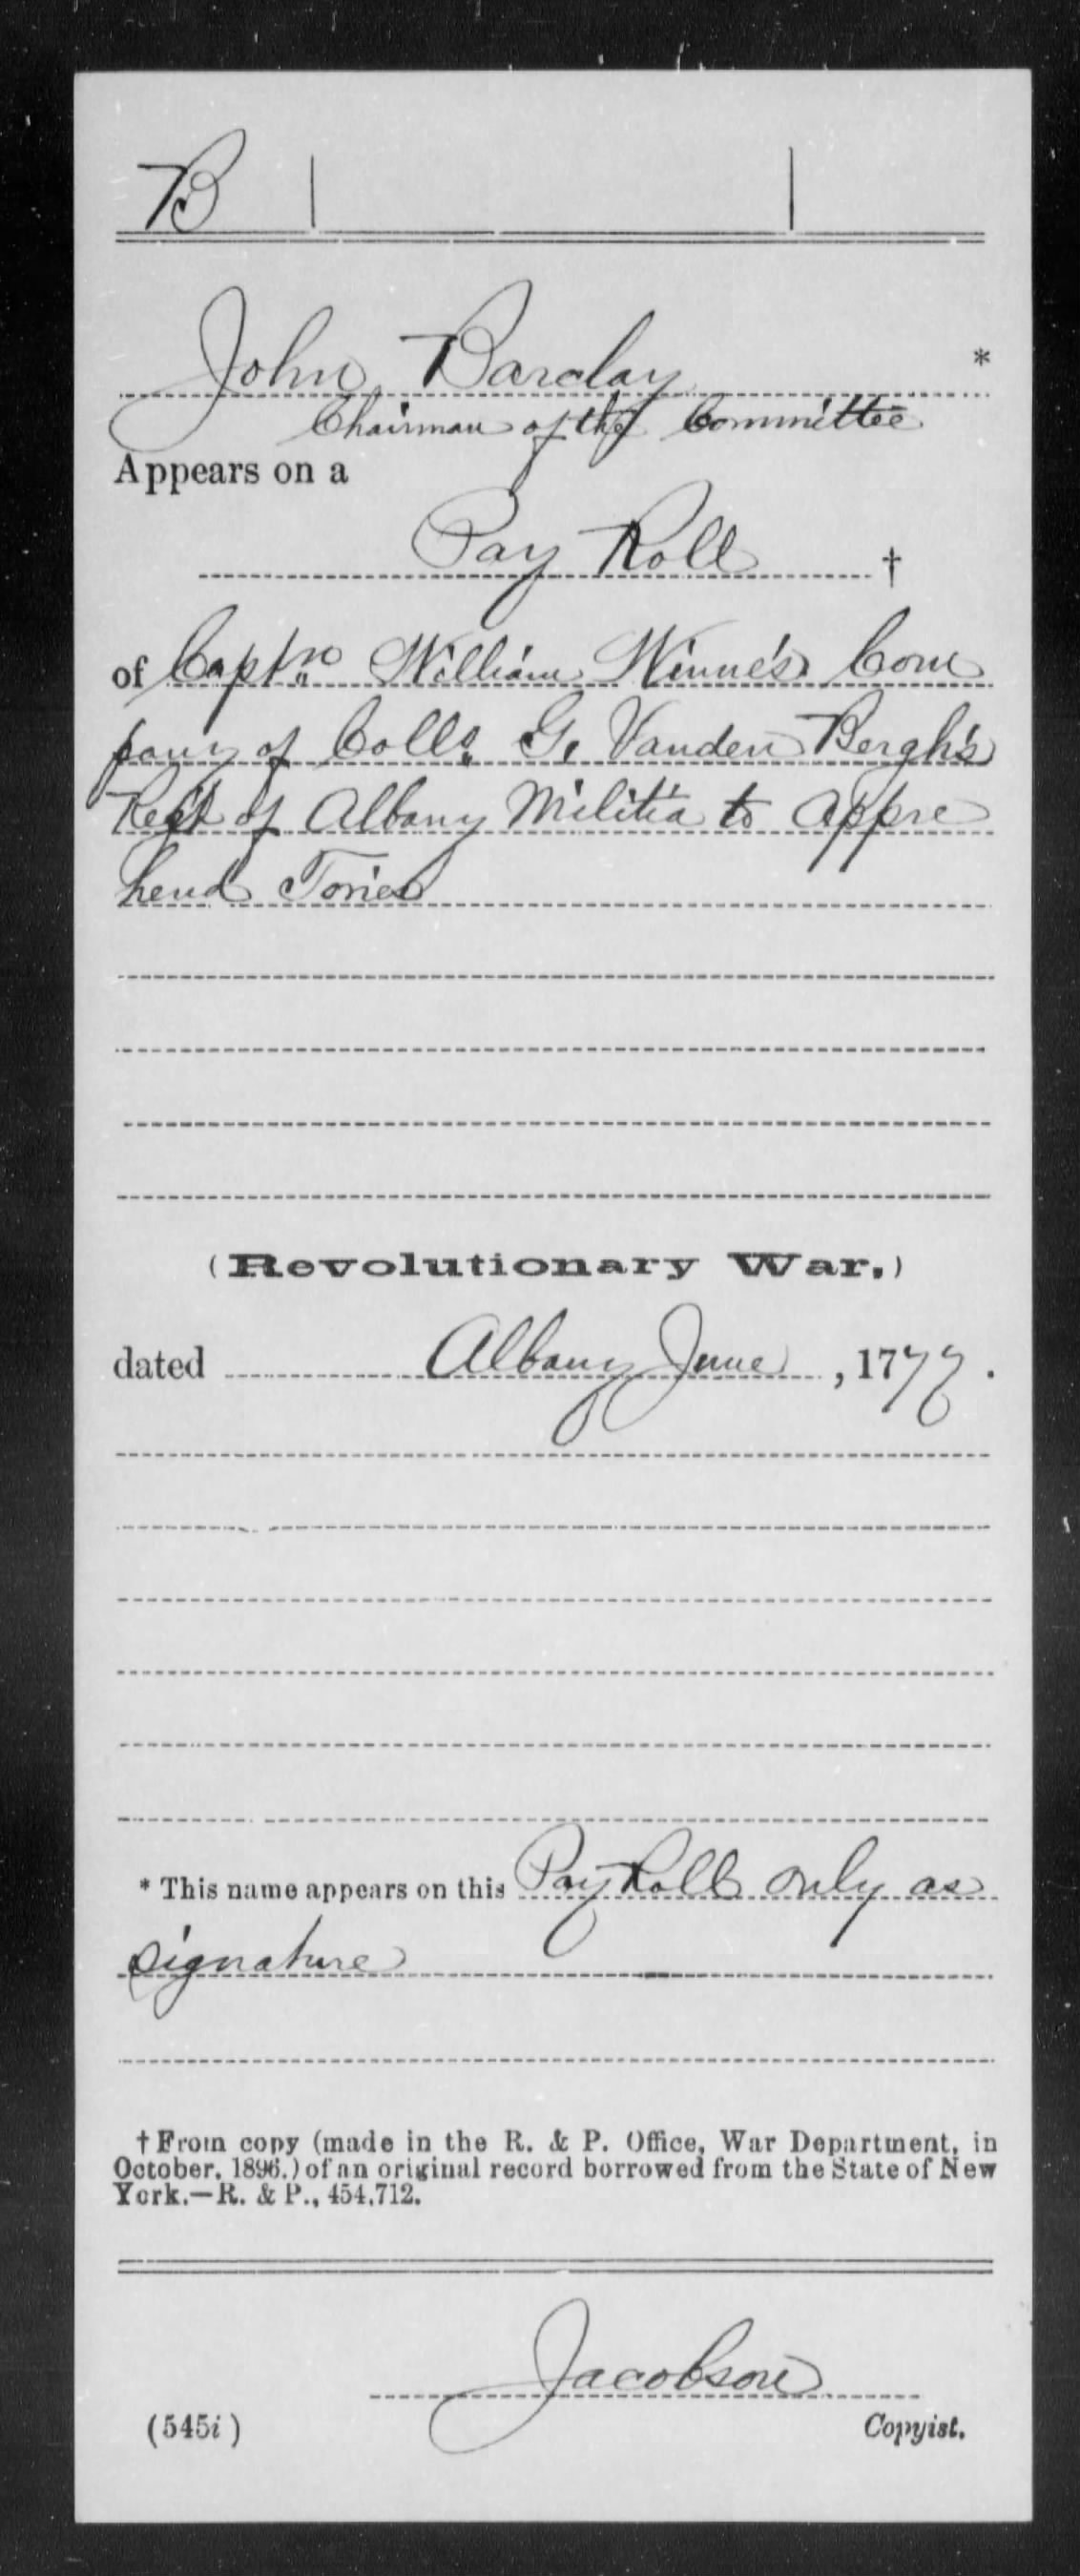 B
John Barclay *
Chairman of the Committee
Appears on a
Pay Roll †
of Captn. William Winne's Com
pany of Colls. G. Vanden Bergh's
Regt of Albany Militia to Appre
hend Tories
(Revolutionary War.)
dated Albany June, 1777.
* This name appears on this Pay Roll only as
signature
† From copy (made in the R. & P. Office, War Department, in
October, 1896.) of an original record borrowed from the State of New
York.—R. & P., 454,712.
Jacobson
(545i) Copyist.